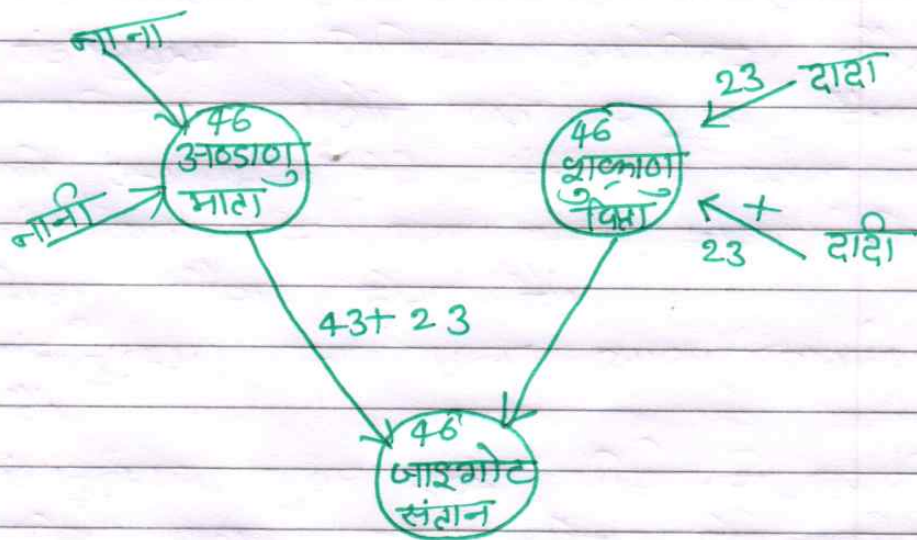 नाना
46
अण्डाणु
माता
नानी
23 दादा
46
शुक्राणु
पिता
+
23 दादी
43+ 23
46
जाइगोट
संतान